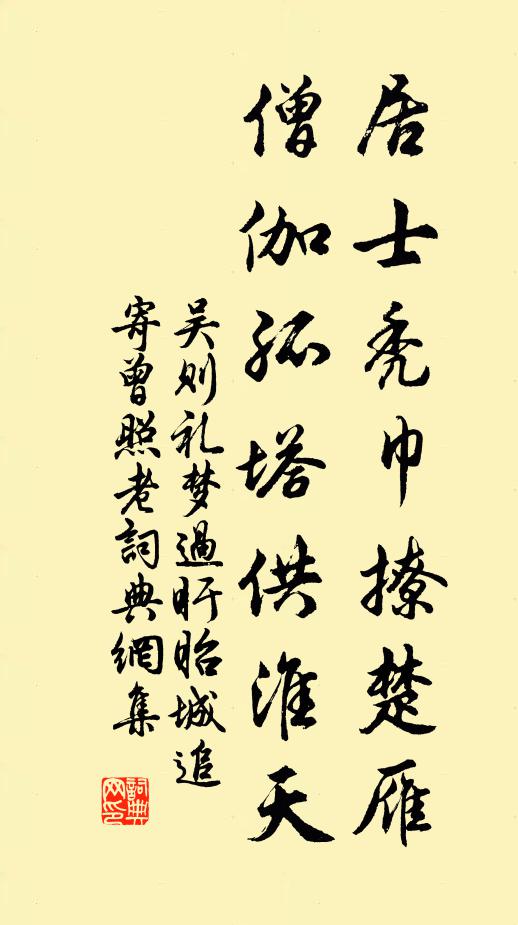 居士秃巾撩楚雁
僧伽孤塔供淮天
吴则礼梦過盱眙城追
寄曾照老詞典網集
詞典网印